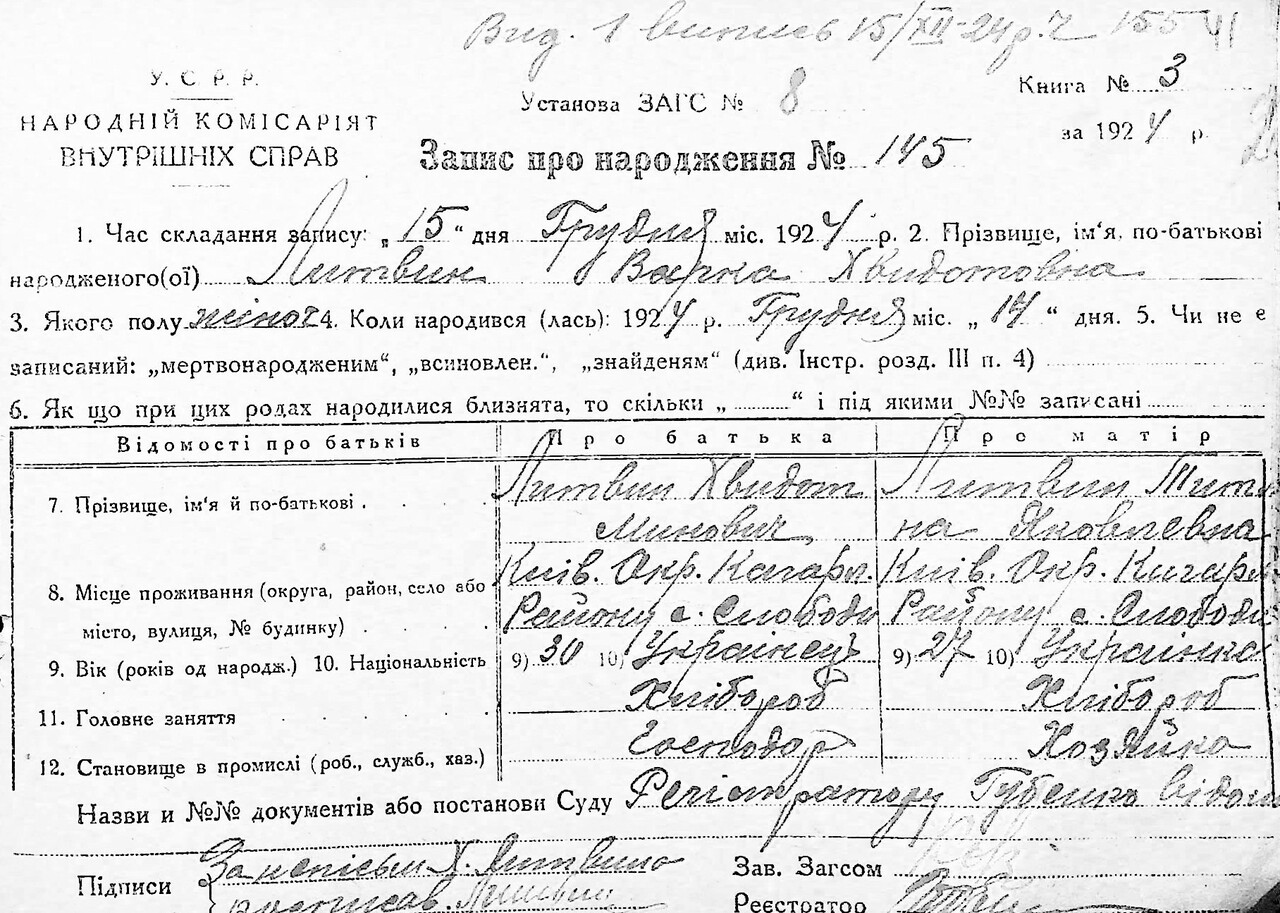 Вид. 1 випись 15/XII-24 р. Ч 155 41
У. С. Р. Р.
НАРОДНІЙ КОМІСАРІЯТ
ВНУТРІШНІХ СПРАВ
Установа ЗАГС № 8
Книга № 3
за 1924 р.
Запис про народження № 145
1. Час складання запису: „ 15 “ дня Грудня міс. 1924 р. 2. Прізвище, ім'я, по-батькові
народженого(ої) Литвин Варка Хвидотовна
3. Якого полу жіноч 4. Коли народився (лась): 1924 р. Грудня міс. „ 14 “ дня. 5. Чи не є
записаний: „мертвонародженим“, „всиновлен.“, „знайденям“ (див. Інстр. розд. III п. 4)
6. Як що при цих родах народилися близнята, то скільки „ “ і під якими №№ записані
Відомості про батьків Про батька Про матір
7. Прізвище, ім'я й по-батькові . Литвин Хвидот Литвин Тит
Минович на Яковлевна
8. Місце проживання (округа, район, село або Київ. Окр. Кагарл. Київ. Окр. Кагарл
місто, вулиця, № будинку) Району с. Слободи Району с. Слободи
9. Вік (років од народж.) 10. Національність 9) 30 10) Українець 9) 27 10) Українка
11. Головне заняття Хлібороб Хлібороб
12. Становище в промислі (роб., служб., хаз.) Господар Хозяйка
Назви и №№ документів або постанови Суду Регістратору Губенко відом
Підписи За непісьм Х. Литвина
Зав. Загсом
росписав. Литвин
Реєстратор